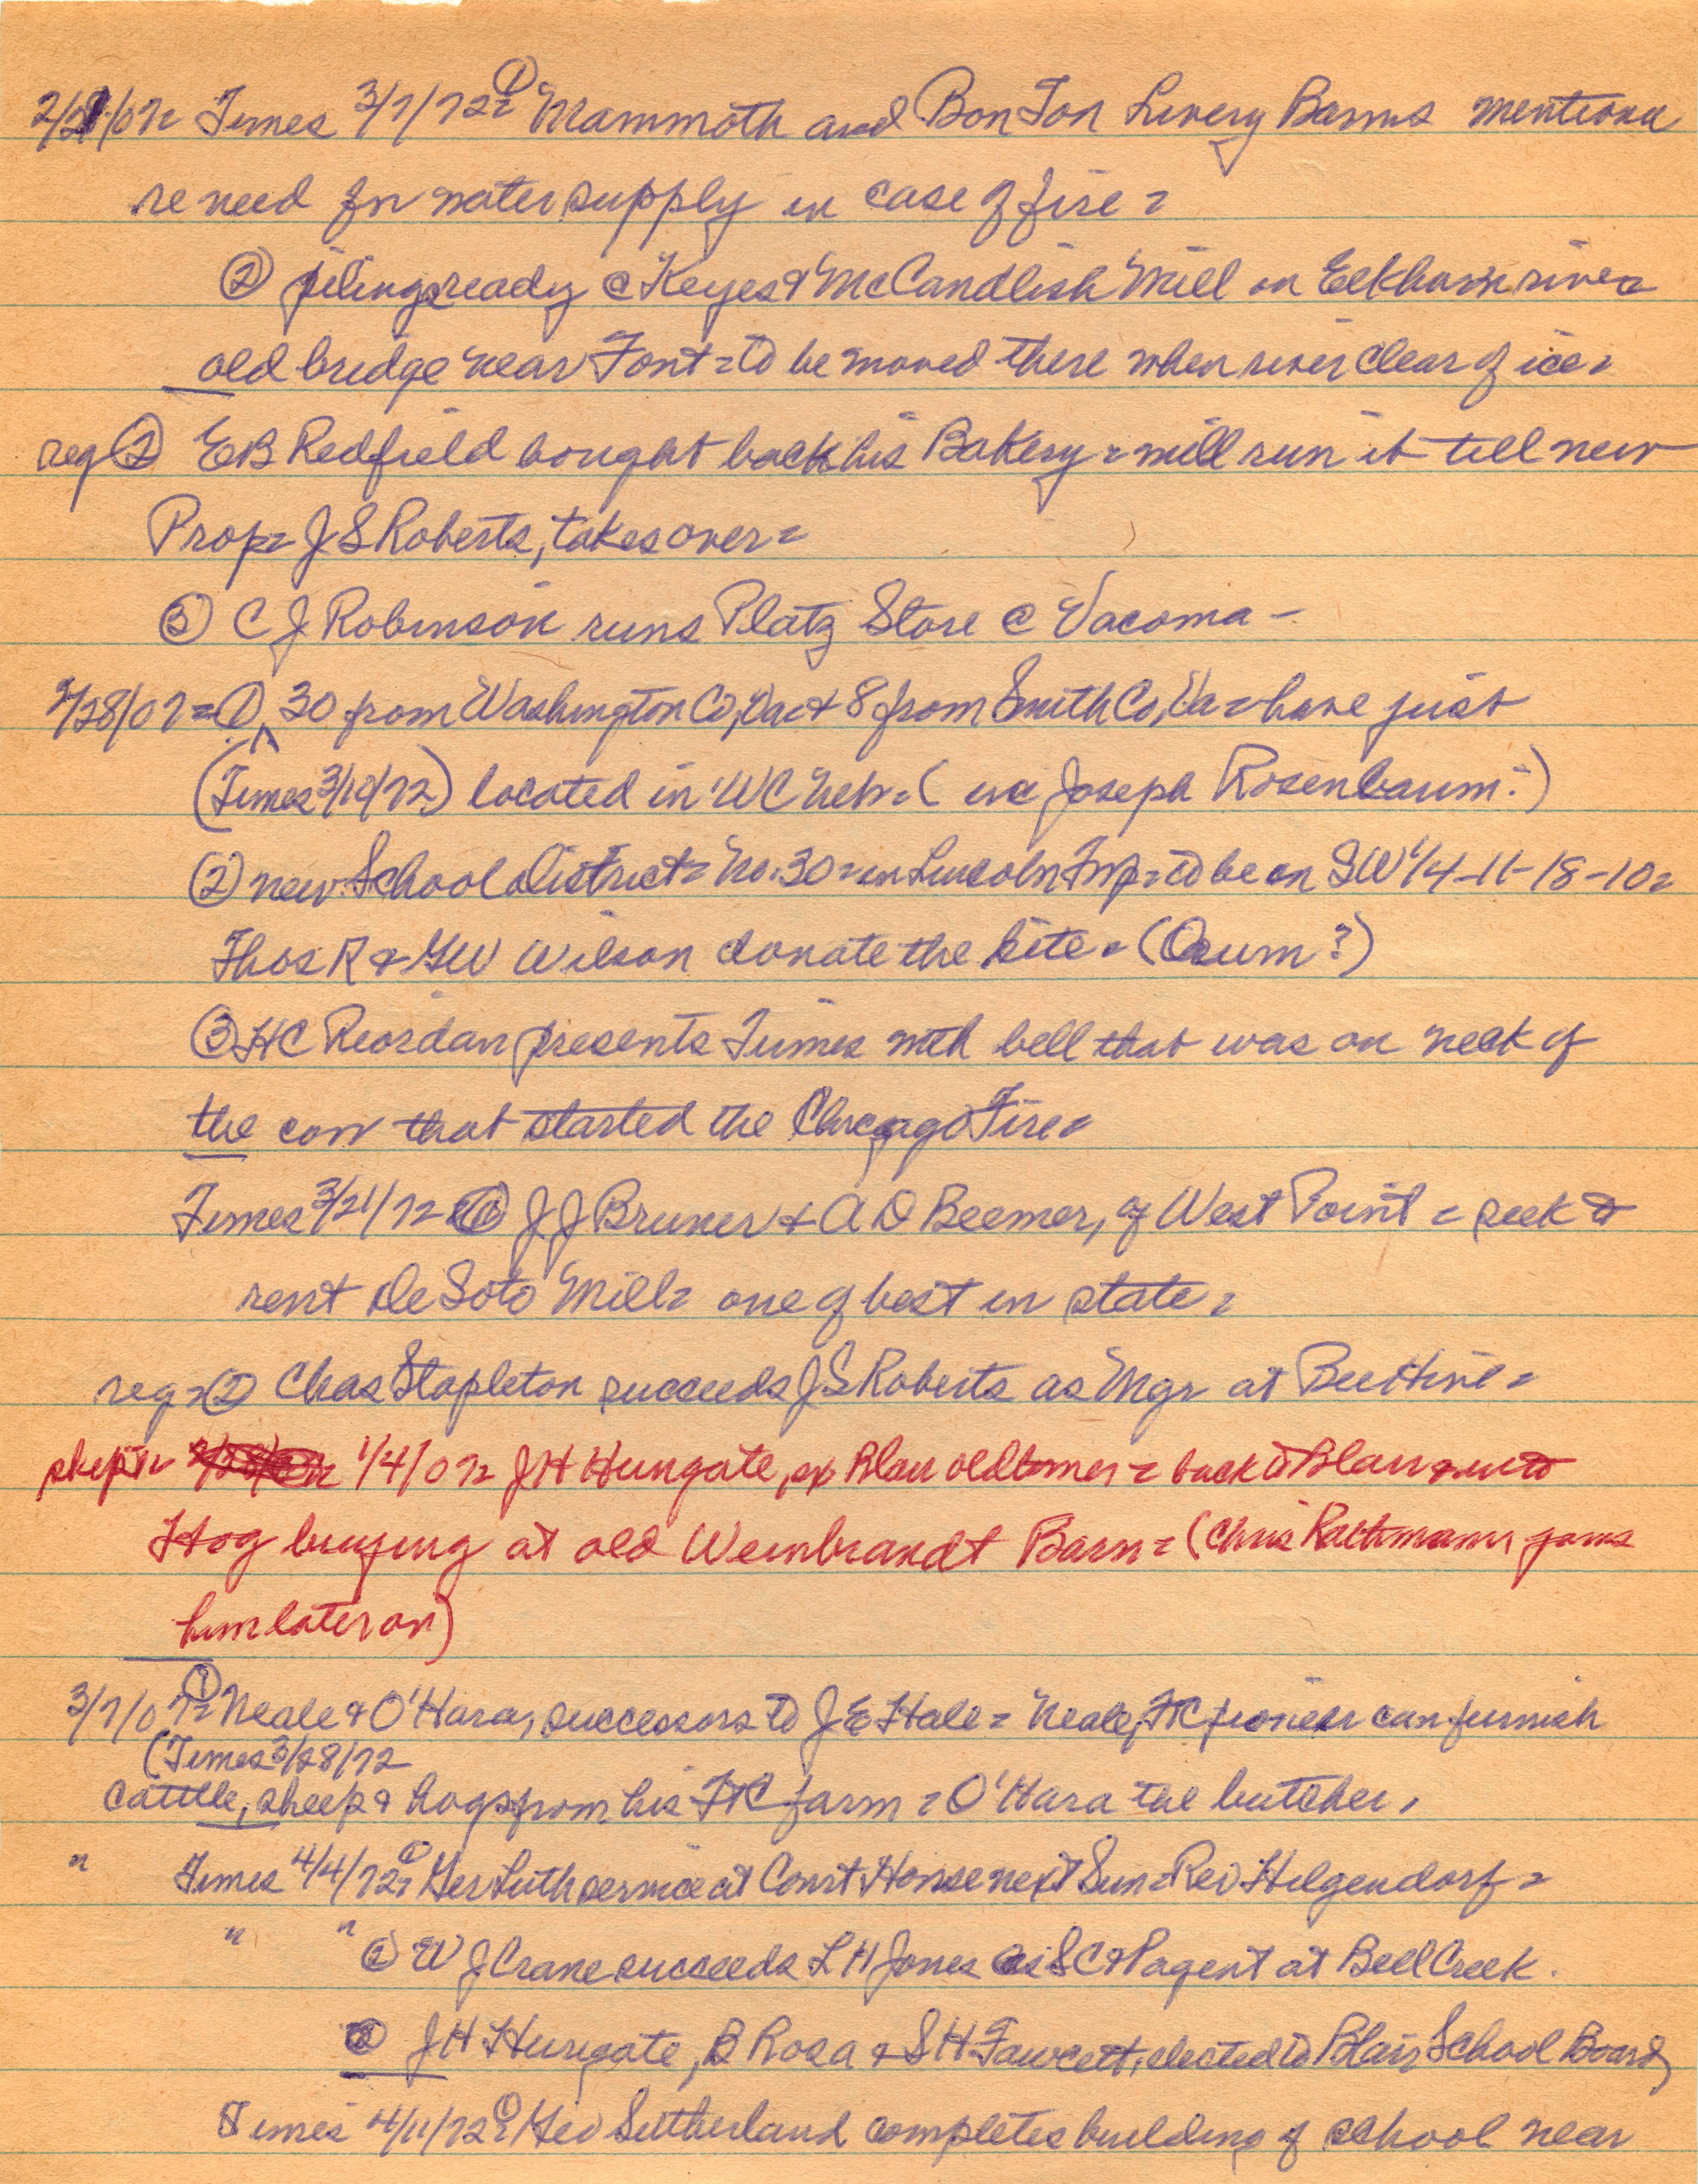 2/21/07= Times 3/7/72= ① Mammoth and Bon Ton Livery Barns mentioned
re need for water supply in case of fire =
② pilings ready @ Keyes & McCandlish Mill on Elkhorn river
old bridge near Font = to be moved there when river clear of ice =
reg ② EB Redfield bought back his Bakery = will run it till new
Prop = J S Roberts, takes over =
③ C J Robinson runs Platz Store @ Vacoma -
2/28/07 = ① 30 from Washington Co, Va + 8 from Smith Co, Va = have just
(Times 3/14/72) located in WC Neb = ( Joseph Rosenbaum?)
② new School District = No. 30 = in Lincoln Twp = to be on SW 1/4-11-18-10 =
Thos R & GW Wilson donate the site = (Orum?)
③ HC Reordan presents Times with bell that was on neck of
the cow that started the Chicago Fire =
Times 3/21/72 = ① J J Bruner + A D Beemer, of West Point = seek to
rent De Soto Mill = one of best in state =
reg = ② Chas Stapleton succeeds J S Roberts as Mgr at Bee Hive =
1/4/07 = J H Hungate, ex Blair oldtimer = back to Blair = into
Hog buying at old Weinbrandt Barn = (Chris Rathmann joins
him later on)
3/7/07 = ① Neale & O'Hara, successors to J E Hale = Neale, FTC pioneer can furnish
(Times 3/28/72
cattle, sheep & hogs from his FTC farm = O'Hara the butcher.
" Times 4/4/72 = ① Ger Luth service at Court House next Sun = Rev Hilgendorf =
" " ② W J Crane succeeds L H Jones as SC&P agent at Bell Creek.
② J H Hungate, B Rosa & S H Fawcett, elected to Blair School Board
Times 4/11/72 = ① Geo Sutherland completes building of school near